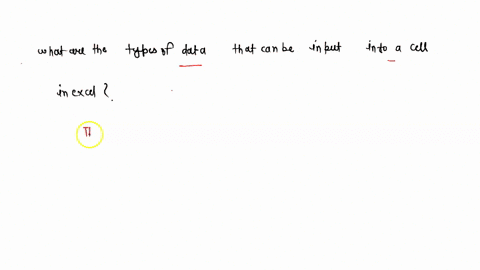 what are the types of data that can be input into a cell
in excel ?
TH